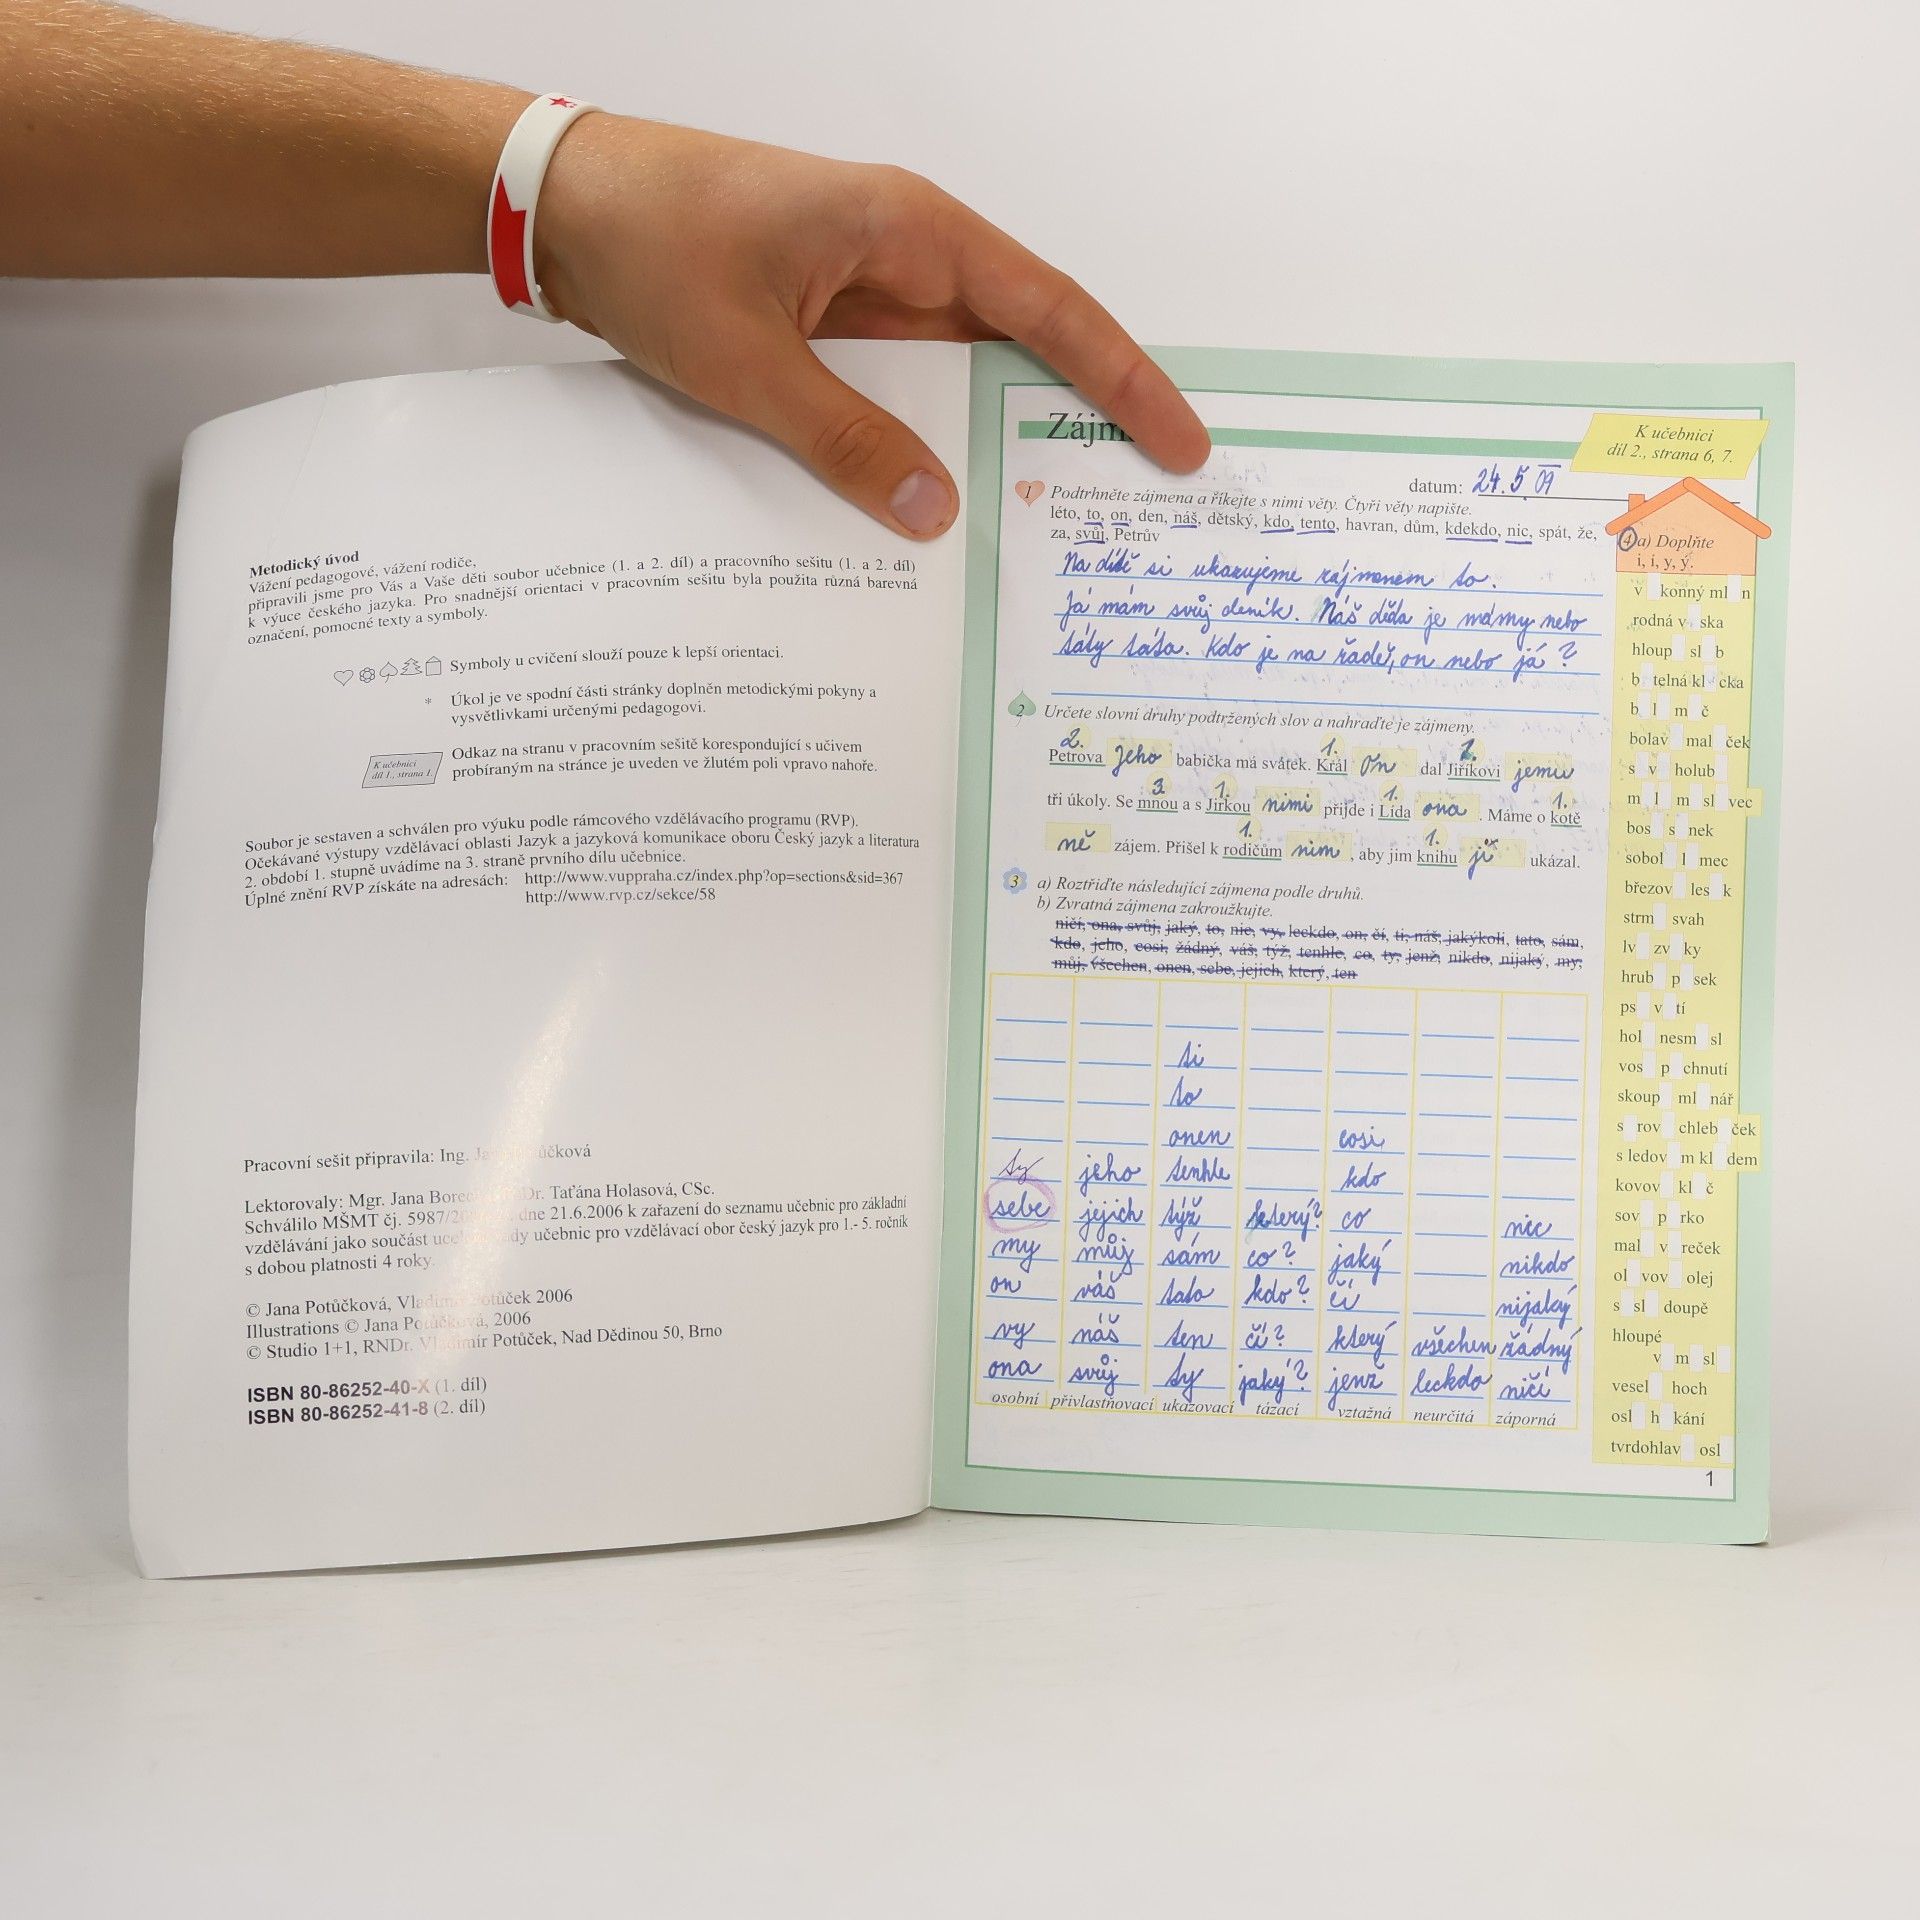 Metodický úvod
Vážení pedagogové, vážení rodiče,
připravili jsme pro Vás a Vaše děti soubor učebnice (1. a 2. díl) a pracovního sešitu (1. a 2. díl)
k výuce českého jazyka. Pro snadnější orientaci v pracovním sešitu byla použita různá barevná
označení, pomocné texty a symboly.
Symboly u cvičení slouží pouze k lepší orientaci.
* Úkol je ve spodní části stránky doplněn metodickými pokyny a
vysvětlivkami určenými pedagogovi.
K učebnici
díl 1., strana 1.
Odkaz na stranu v pracovním sešitě korespondující s učivem
probíraným na stránce je uveden ve žlutém poli vpravo nahoře.
Soubor je sestaven a schválen pro výuku podle rámcového vzdělávacího programu (RVP).
Očekávané výstupy vzdělávací oblasti Jazyk a jazyková komunikace oboru Český jazyk a literatura
2. období 1. stupně uvádíme na 3. straně prvního dílu učebnice.
Úplné znění RVP získáte na adresách: http://www.vuppraha.cz/index.php?op=sections&sid=367
http://www.rvp.cz/sekce/58
Pracovní sešit připravila: Ing.
Lektorovaly: Mgr. Jana Taťána Holasová, CSc.
Schválilo MŠMT čj. 5987/ dne 21.6.2006 k zařazení do seznamu učebnic pro základní
vzdělávání jako součást učebnic pro vzdělávací obor český jazyk pro 1.- 5. ročník
s dobou platnosti 4 roky.
© Jana Potůčková, Vladimír Potůček 2006
Illustrations © Jana Potůčková, 2006
© Studio 1+1, RNDr. Vladimír Potůček, Nad Dědinou 50, Brno
ISBN 80-86252-40-X (1. díl)
ISBN 80-86252-41-8 (2. díl)
Zájm
K učebnici
díl 2., strana 6, 7.
datum: 24. 5. 09
1 Podtrhněte zájmena a říkejte s nimi věty. Čtyři věty napište.
léto, to, on, den, náš, dětský, kdo, tento, havran, dům, kdekdo, nic, spát, že,
za, svůj, Petrův
Na dítě si ukazujeme zájmenem to.
Já mám svůj deník. Náš děda je mámy nebo
táty táta. Kdo je na řadě, on nebo já?
2 Určete slovní druhy podtržených slov a nahraďte je zájmeny.
2. 1. 1.
Petrova jeho babička má svátek. Král On dal Jiříkovi jemu
3. 1. 1. 1.
tři úkoly. Se mnou a s Jirkou nimi přijde i Lída ona . Máme o kotě
1. 1.
ně zájem. Přišel k rodičům nim , aby jim knihu ji ukázal.
3 a) Roztřiďte následující zájmena podle druhů.
b) Zvratná zájmena zakroužkujte.
ničí, ona, svůj, jaký, to, nic, vy, leckdo, on, čí, ti, náš, jakýkoli, tato, sám,
kdo, jeho, cosi, žádný, váš, týž, tenhle, co, ty, jenž, nikdo, nijaký, my,
můj, všechen, onen, sebe, jejich, který, ten
ti
to
onen cosi
ty jeho tenhle kdo
sebe jejich týž který? co nic
my můj sám co? jaký nikdo
on váš tato kdo? čí nijaký
vy náš ten čí? který všechen žádný
ona svůj ty jaký? jenž leckdo ničí
osobní přivlastňovací ukazovací tázací vztažná neurčitá záporná
4 a) Doplňte
i, í, y, ý.
v konný ml n
rodná v ska
hloup sl b
b telná kl čka
b l m č
bolav mal ček
s v holub
m l m sl vec
bos s nek
sobol l mec
březov les k
strm svah
lv zv ky
hrub p sek
ps v tí
hol nesm sl
vos p chnutí
skoup ml nář
s rov chleb ček
s ledov m kl dem
kovov kl č
sov p rko
mal v reček
ol vov olej
s sl doupě
hloupé
v m sl
vesel hoch
osl h kání
tvrdohlav osl
1